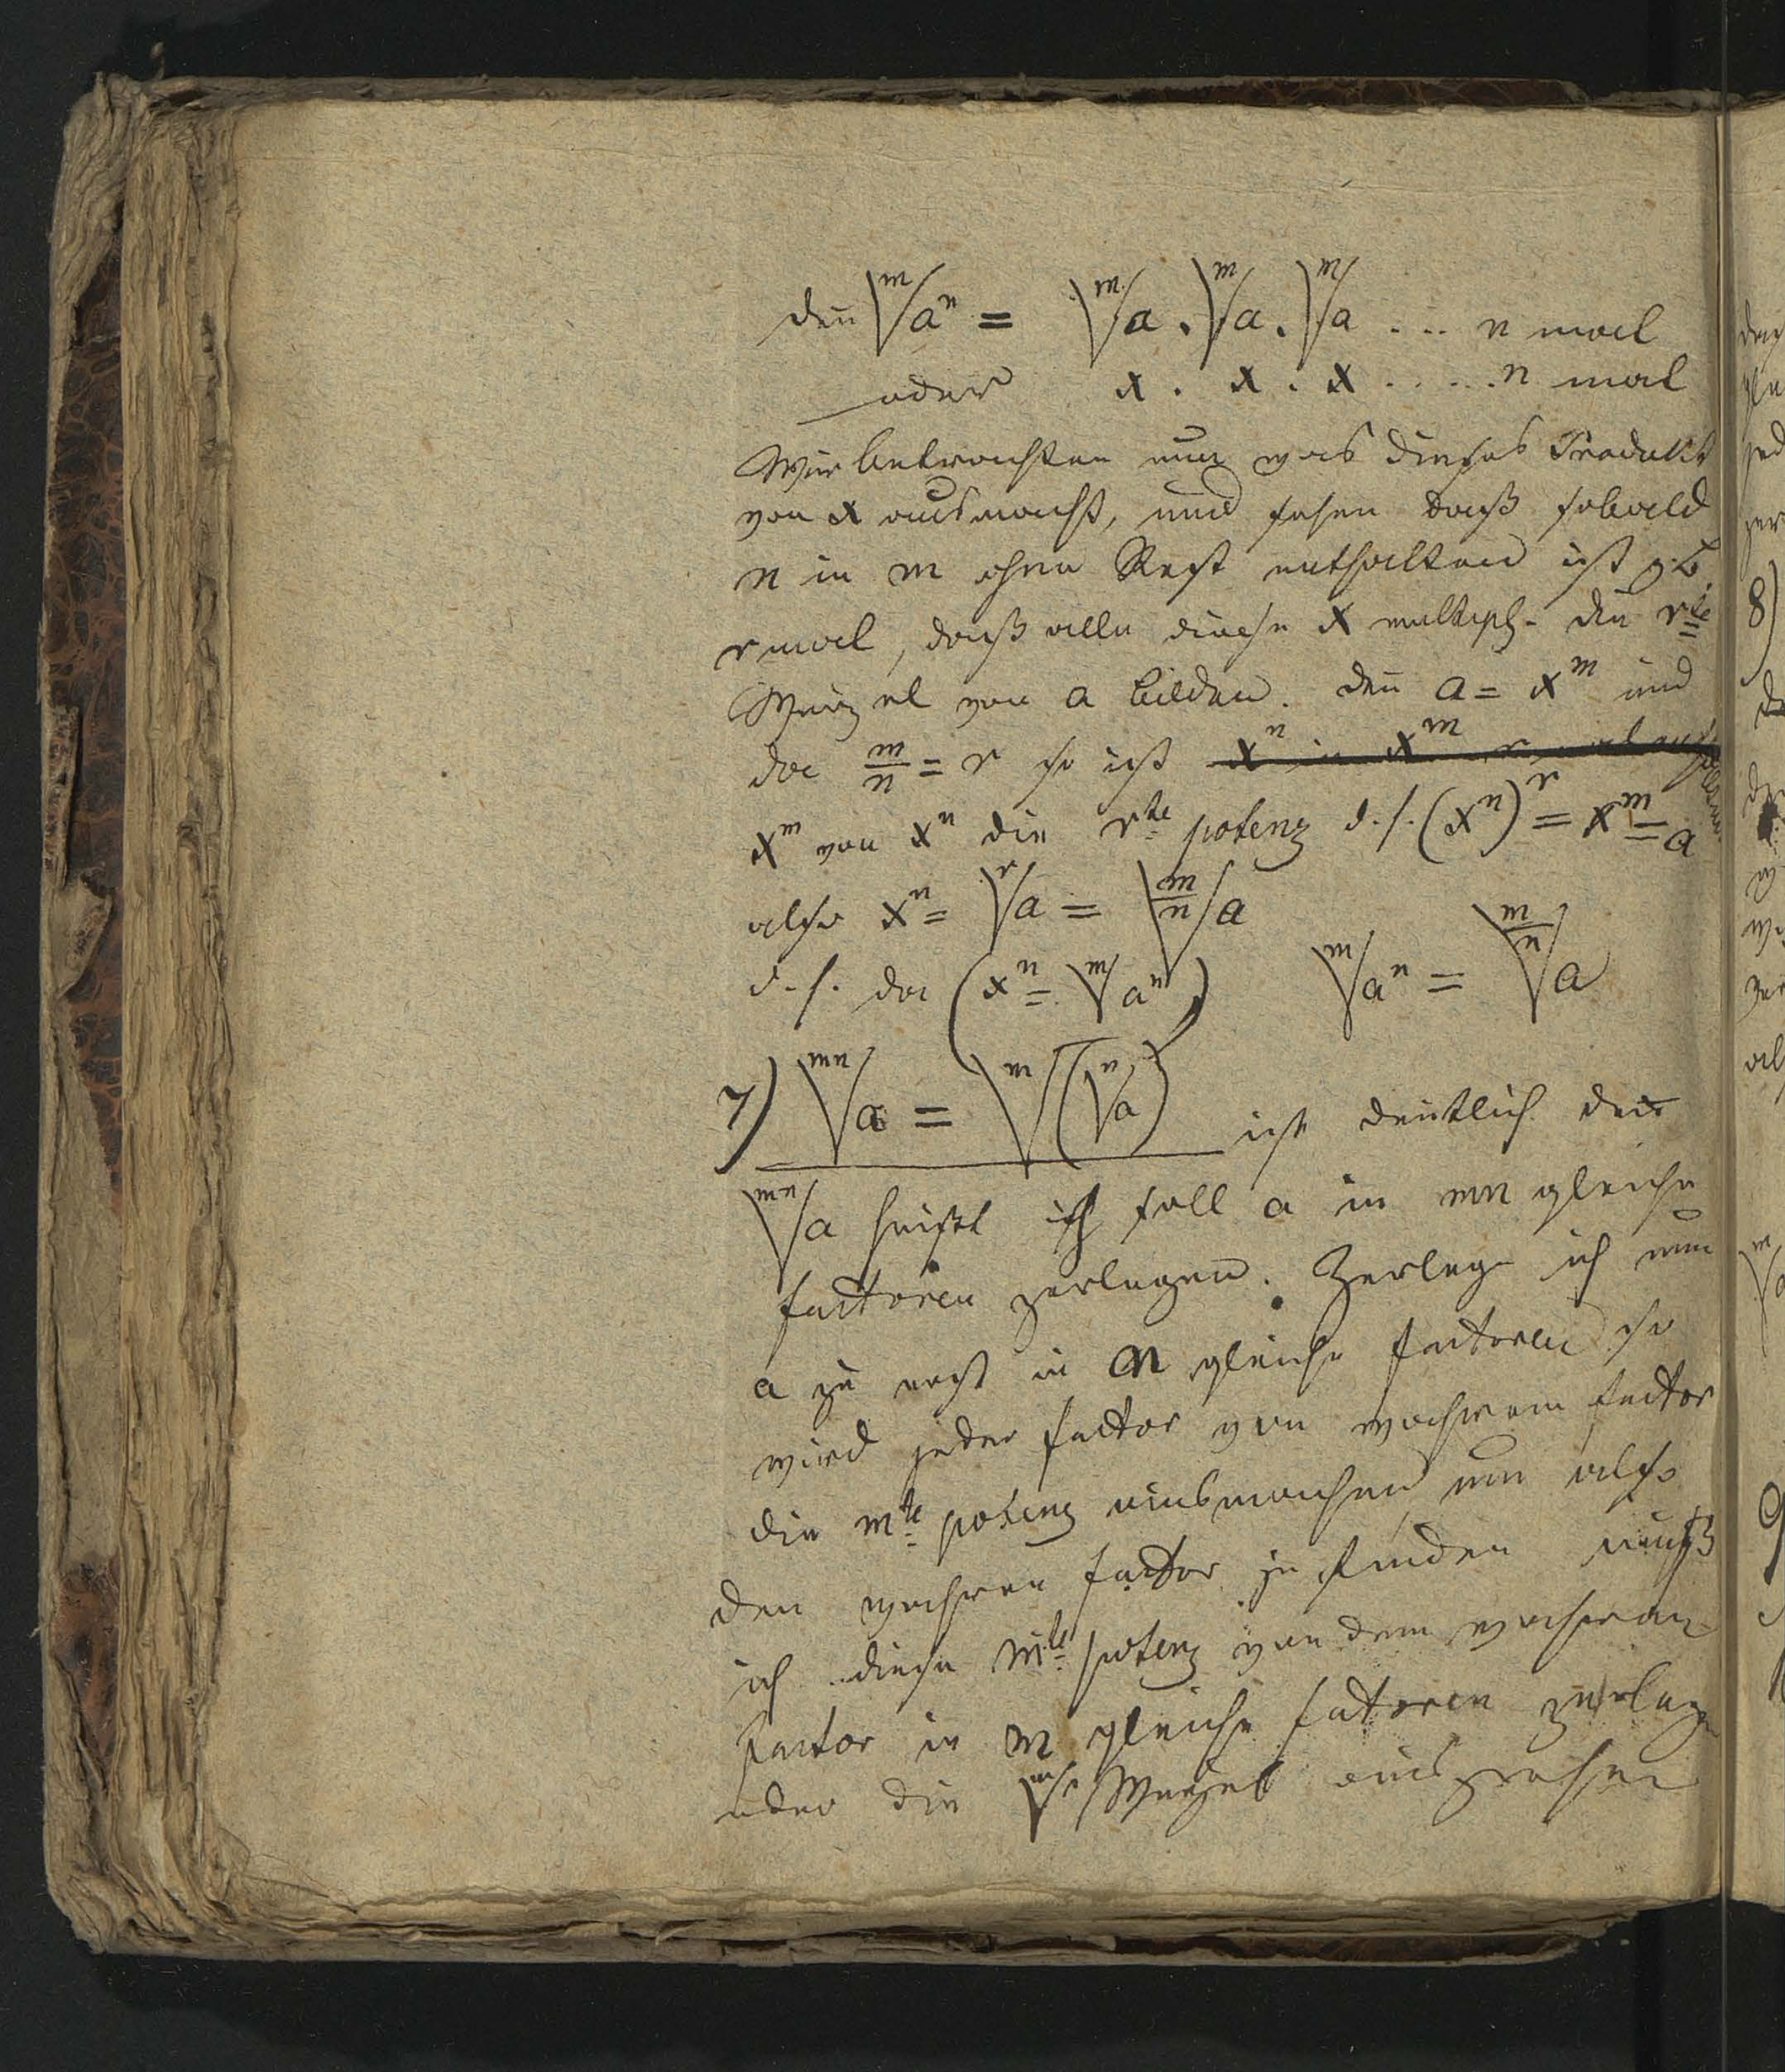 den̅ ᵐ√aⁿ = ᵐ√a . ᵐ√a . ᵐ√a .... n mal
oder x . x . x ..... n mal
Wir betrachten nun was dieses Produkt
von x ausmacht, und sehen daß sobald
n in m ohne Rest enthalten ist z. B.
r mal, daß alle diese x multipl. die rte
Wurzel von a bilden. den̅ a = xᵐ und
da m/n = r so ist xⁿ in xᵐ r mal
xᵐ von xⁿ die rte potenz d. h. (xⁿ)ʳ = xᵐ = a
also xⁿ = ʳ√a = ᵐ⁄ⁿ√a
d. h. da (xⁿ = ᵐ√aⁿ) ᵐ√aⁿ = ᵐ⁄ⁿ√a
7) ᵐⁿ√a = ᵐ√(ⁿ√a) ist deutlich den
ᵐⁿ√a heißt ich soll a in mn gleiche
factoren zerlegen. Zerlege ich nun
a zu erst in n gleiche factoren so
wird jeder factor von wahrem factor
die mte potenz ausmachen um also
den wahren factor zu finden muß
ich diese mte potenz von dem wahren
factor in m gleiche fatoren zerlege
oder die Wurzel ausziehen
den
8)
9